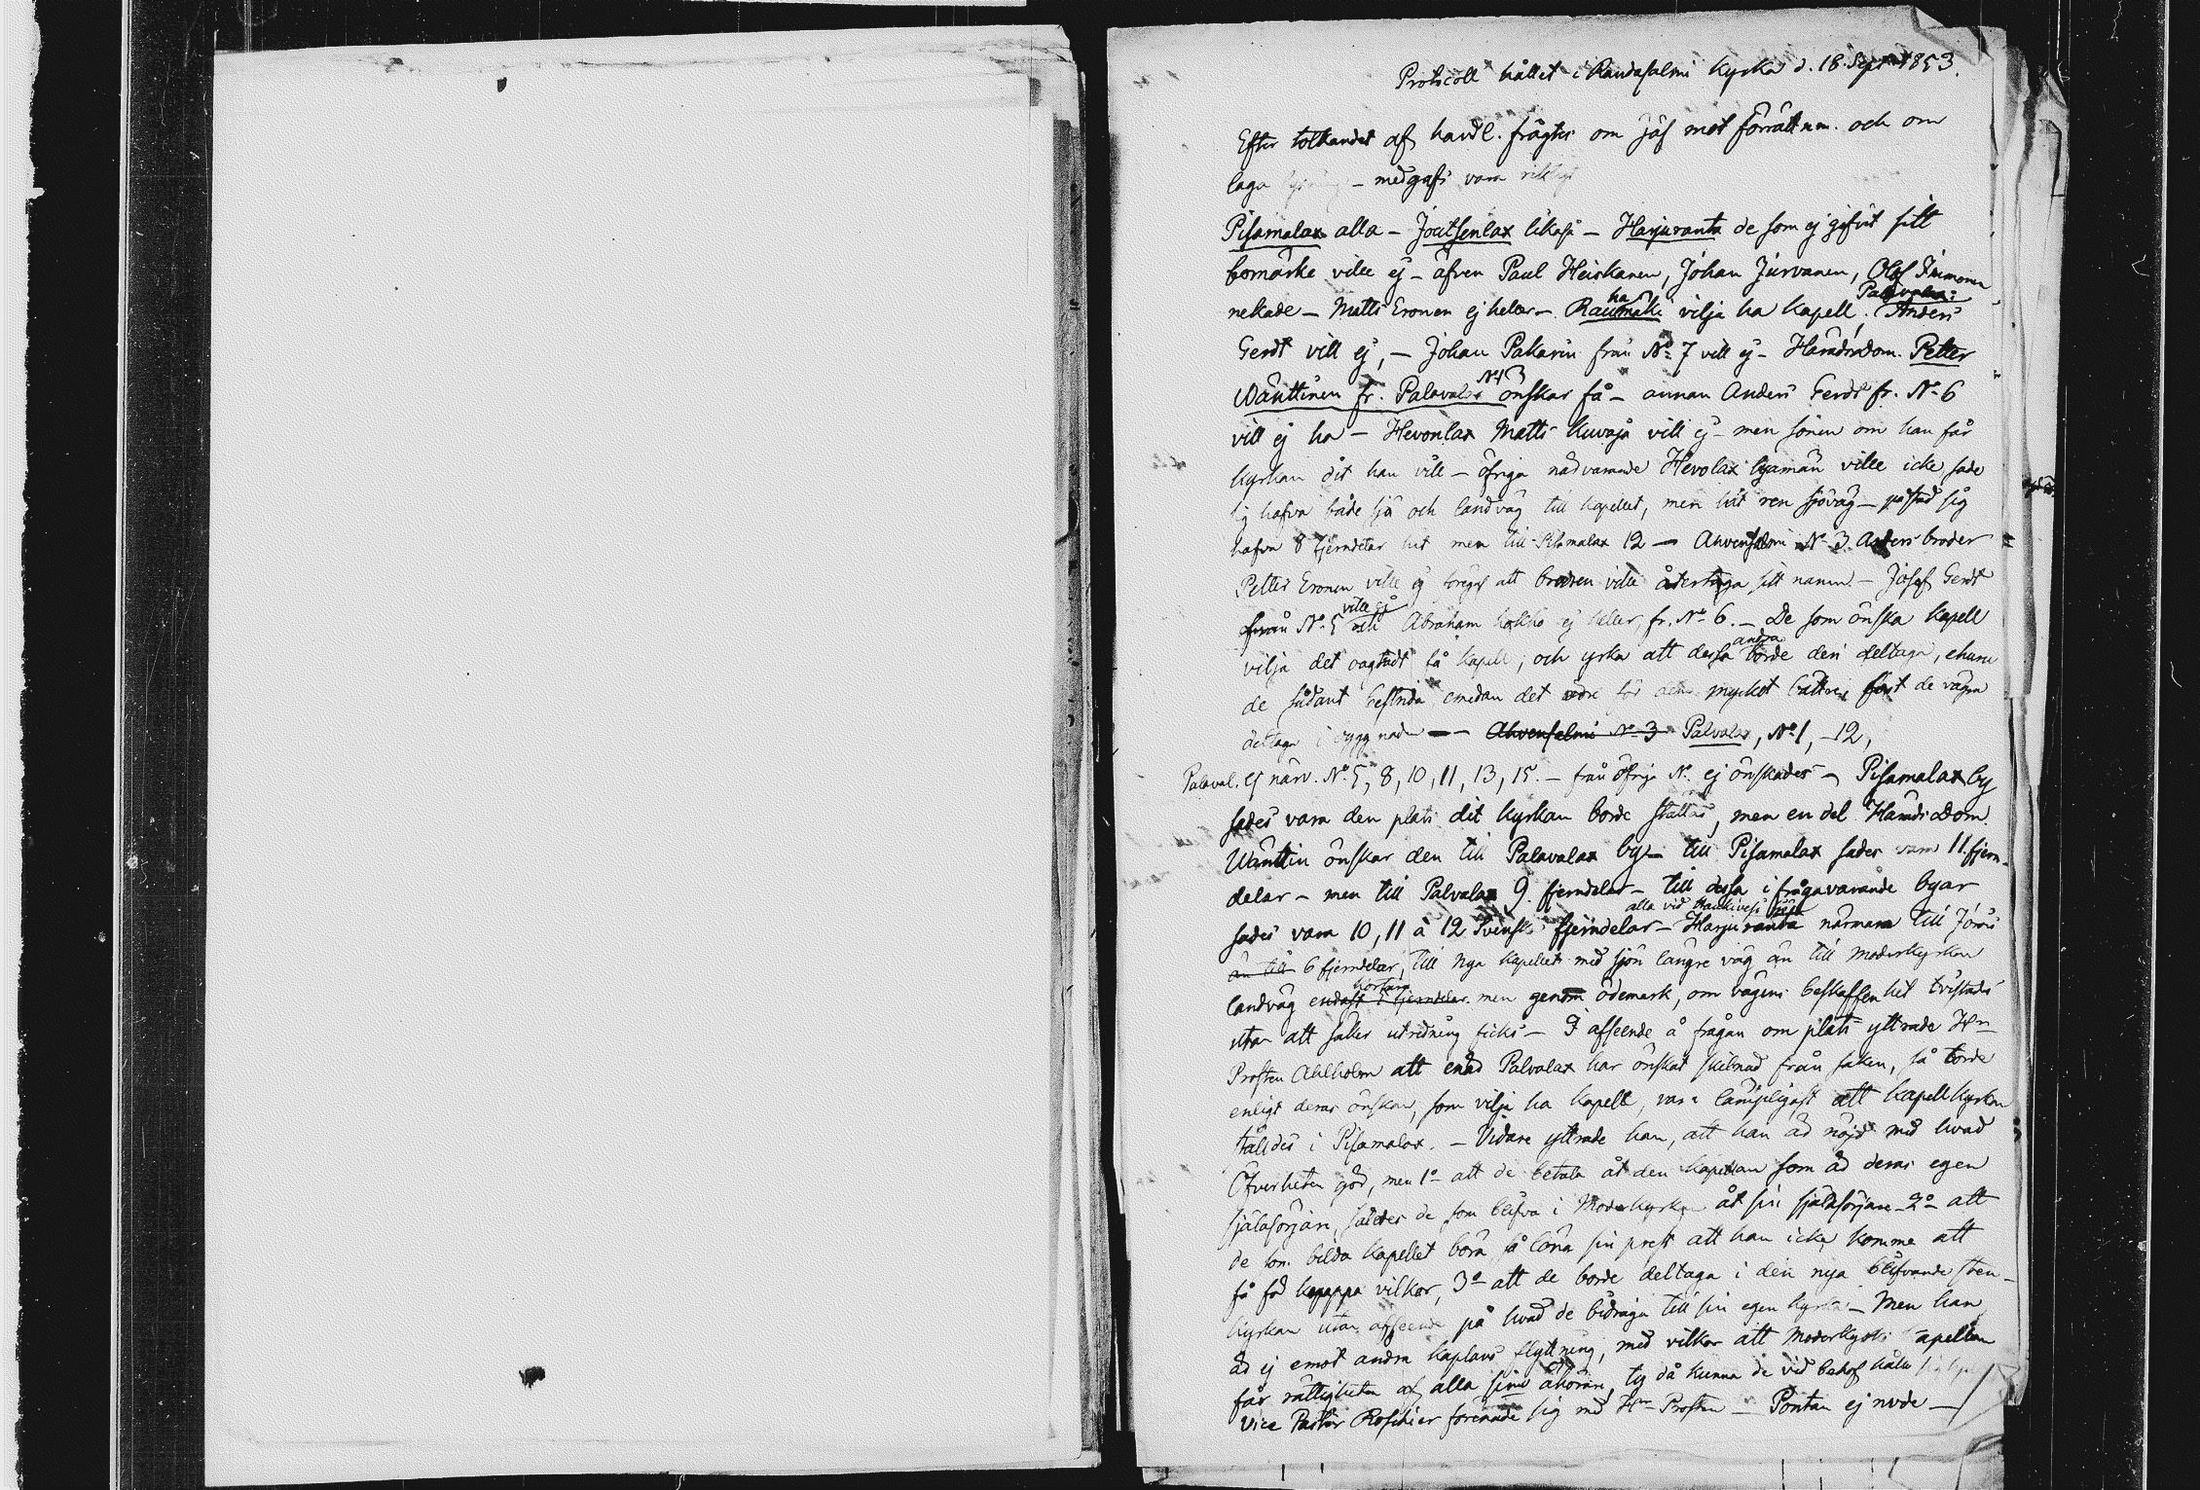 Protocoll hållet i Randasalmi Kyrka d. 18 Sept 1853.
Efter tolkandet af handl. frågtes om jäf mot förrättn.m. och om
laga – medgafs vara riktigt
Pisamalax alla – Joutsenlax likaså – Harjuranta de som ej gifvit sitt
bomärke ville ej – äfven Paul Heiskanen, Johan Jurvanen, Olof Immonen
nekade – Matts Eronen ej heller – Rauhamäki vilja ha Kapell. Palvalax: Anders
Gerdt vill ej, – Johan Pakarin från No 7 vill ej – Häradsdom. Petter
Wänttinen fr. Palavalax No 13 önskar få – annan Anders Gerdt fr. No 6
vill ej ha – Hevonlax Matts Kuvaja vill ej – men sonen om han får
Kyrkan dit han vill – öfriga närvarande Hevolax byamän ville icke sade
sig hafva både sjö och landväg till kapellet, men hit ren sjöväg – påstod sig
hafva 8 fjerndelar hit men till Pisamalax 12 – Ahvensalmi No 3 Anders broder
Petter Eronen ville ej föregaf att brodren ville återtaga sitt namn. – Josef Gerdt
från No 5 ville ej Abraham ej heller, fr. No 6. – De som önska Kapell
vilja det oagtadt få kapell, och yrka att dessa andra borde deri deltaga, ehuru
de sådant bestrida emedan det vore för dem mycket bättre, fast de vägra
deltaga i byggnaden –– Ahvensalmi No 3 Palvalax, No 1, –12,
Palaval. ej närv. No 5, 8, 10, 11, 13, 15. – från öfriga No. ej önskades – Pisamalax by
sades vara den plats dit kyrkan borde ställas, men en del Häradsdom.
Wänttin önskar den till Palavalax by – till Pisamalax sades vara 11 fjern-
delar – men till Palvalax 9 fjerndelar – till dessa i frågavarande byar
alla vid Haukivesi sjö
sades vara 10, 11 à 12 Svenska fjerndelar – Harjuranta närmare till Jorois
än till 6 fjerndelar, till nya kapellet med sjön längre väg än till moderkyrkan
landväg endast kortare 5 fjerndelar men genom ödemark, om vägens beskaffenhet tvistades
utan att säker utredning ficks – I afseende å frågan om plats yttrade Hr
Prosten Ahlholm att enär Palvalax har önskat skilnad från saken, så torde
enligt deras önskan, som vilja ha kapell, vara lämpligast att kapellkyrkan
ställdes i Pisamalax. – Vidare yttrade han, att han är nöjd med hvad
Öfverheten gör, men 1o att de betala åt den kapellan som är deras egen
själasörjare, således de som blifva i Moderkyrkan åt sin själasörjare – 2o att
de som bilda kapellet böra så löna sin prest att han icke komme att
få för knappa vilkor, 3o att de borde deltaga i den nya blifvande sten-
kyrkan utan afseende på hvad de bidraga till sin egen kyrka – Men han
är ej emot andra kaplans flyttning, med vilkor att moderkyrko apellan
får rättigheten af alla sina åhörare, ty då kunna de vid behof hålla
Vice Pastor Roschier förenade sig med Hr Prosten – Pontan ej nvde –